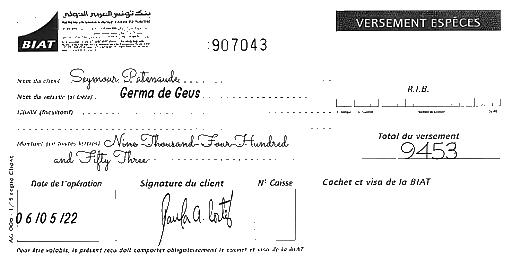 بنك تونس العربي الدولي
BIAT
VERSEMENT ESPÈCES
907043
Nom du client Seymour Patenaude
Nom du remettant (si tiers) Germa de Geus
R.I.B.
Libellé (facultatif)
Montant (en toutes lettres) Nine Thousand Four Hundred
and Fifty Three
Total du versement
9453
Date de l'opération
Signature du client
N° Caisse
Cachet et visa de la BIAT
06/05/22
Paula A. Cortez
Pour être valable, le présent reçu doit comporter obligatoirement le cachet et visa de la BIAT